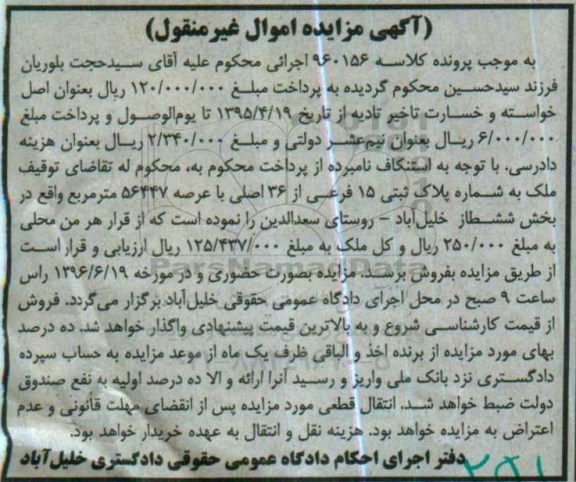 (آگهی مزایده اموال غیرمنقول)
به موجب پرونده کلاسه ۹۶۰۱۵۶ اجرائی محکوم علیه آقای سیدحجت بلوریان
فرزند سیدحسین محکوم گردیده به پرداخت مبلغ ۱۲۰/۰۰۰/۰۰۰ ریال بعنوان اصل
خواسته و خسارت تاخیر تادیه از تاریخ ۱۳۹۵/۴/۱۹ تا یوم‌الوصول و پرداخت مبلغ
۶/۰۰۰/۰۰۰ ریال بعنوان نیم‌عشر دولتی و مبلغ ۲/۳۴۰/۰۰۰ ریال بعنوان هزینه
دادرسی، با توجه به استنکاف نامبرده از پرداخت محکوم به، محکوم له تقاضای توقیف
ملک به شماره پلاک ثبتی ۱۵ فرعی از ۳۶ اصلی با عرصه ۵۶۴۴۷ مترمربع واقع در
بخش ششطاز خلیل‌آباد - روستای سعدالدین را نموده است که از قرار هر من محلی
به مبلغ ۲۵۰/۰۰۰ ریال و کل ملک به مبلغ ۱۲۵/۴۳۷/۰۰۰ ریال ارزیابی و قرار است
از طریق مزایده بفروش برسد. مزایده بصورت حضوری و در مورخه ۱۳۹۶/۶/۱۹ راس
ساعت ۹ صبح در محل اجرای دادگاه عمومی حقوقی خلیل‌آباد برگزار می‌گردد. فروش
از قیمت کارشناسی شروع و به بالاترین قیمت پیشنهادی واگذار خواهد شد. ده درصد
بهای مورد مزایده از برنده اخذ و الباقی ظرف یک ماه از موعد مزایده به حساب سپرده
دادگستری نزد بانک ملی واریز و رسید آنرا ارائه و الا ده درصد اولیه به نفع صندوق
دولت ضبط خواهد شد. انتقال قطعی مورد مزایده پس از انقضای مهلت قانونی و عدم
اعتراض به مزایده خواهد بود. هزینه نقل و انتقال به عهده خریدار خواهد بود.
دفتر اجرای احکام دادگاه عمومی حقوقی دادگستری خلیل‌آباد